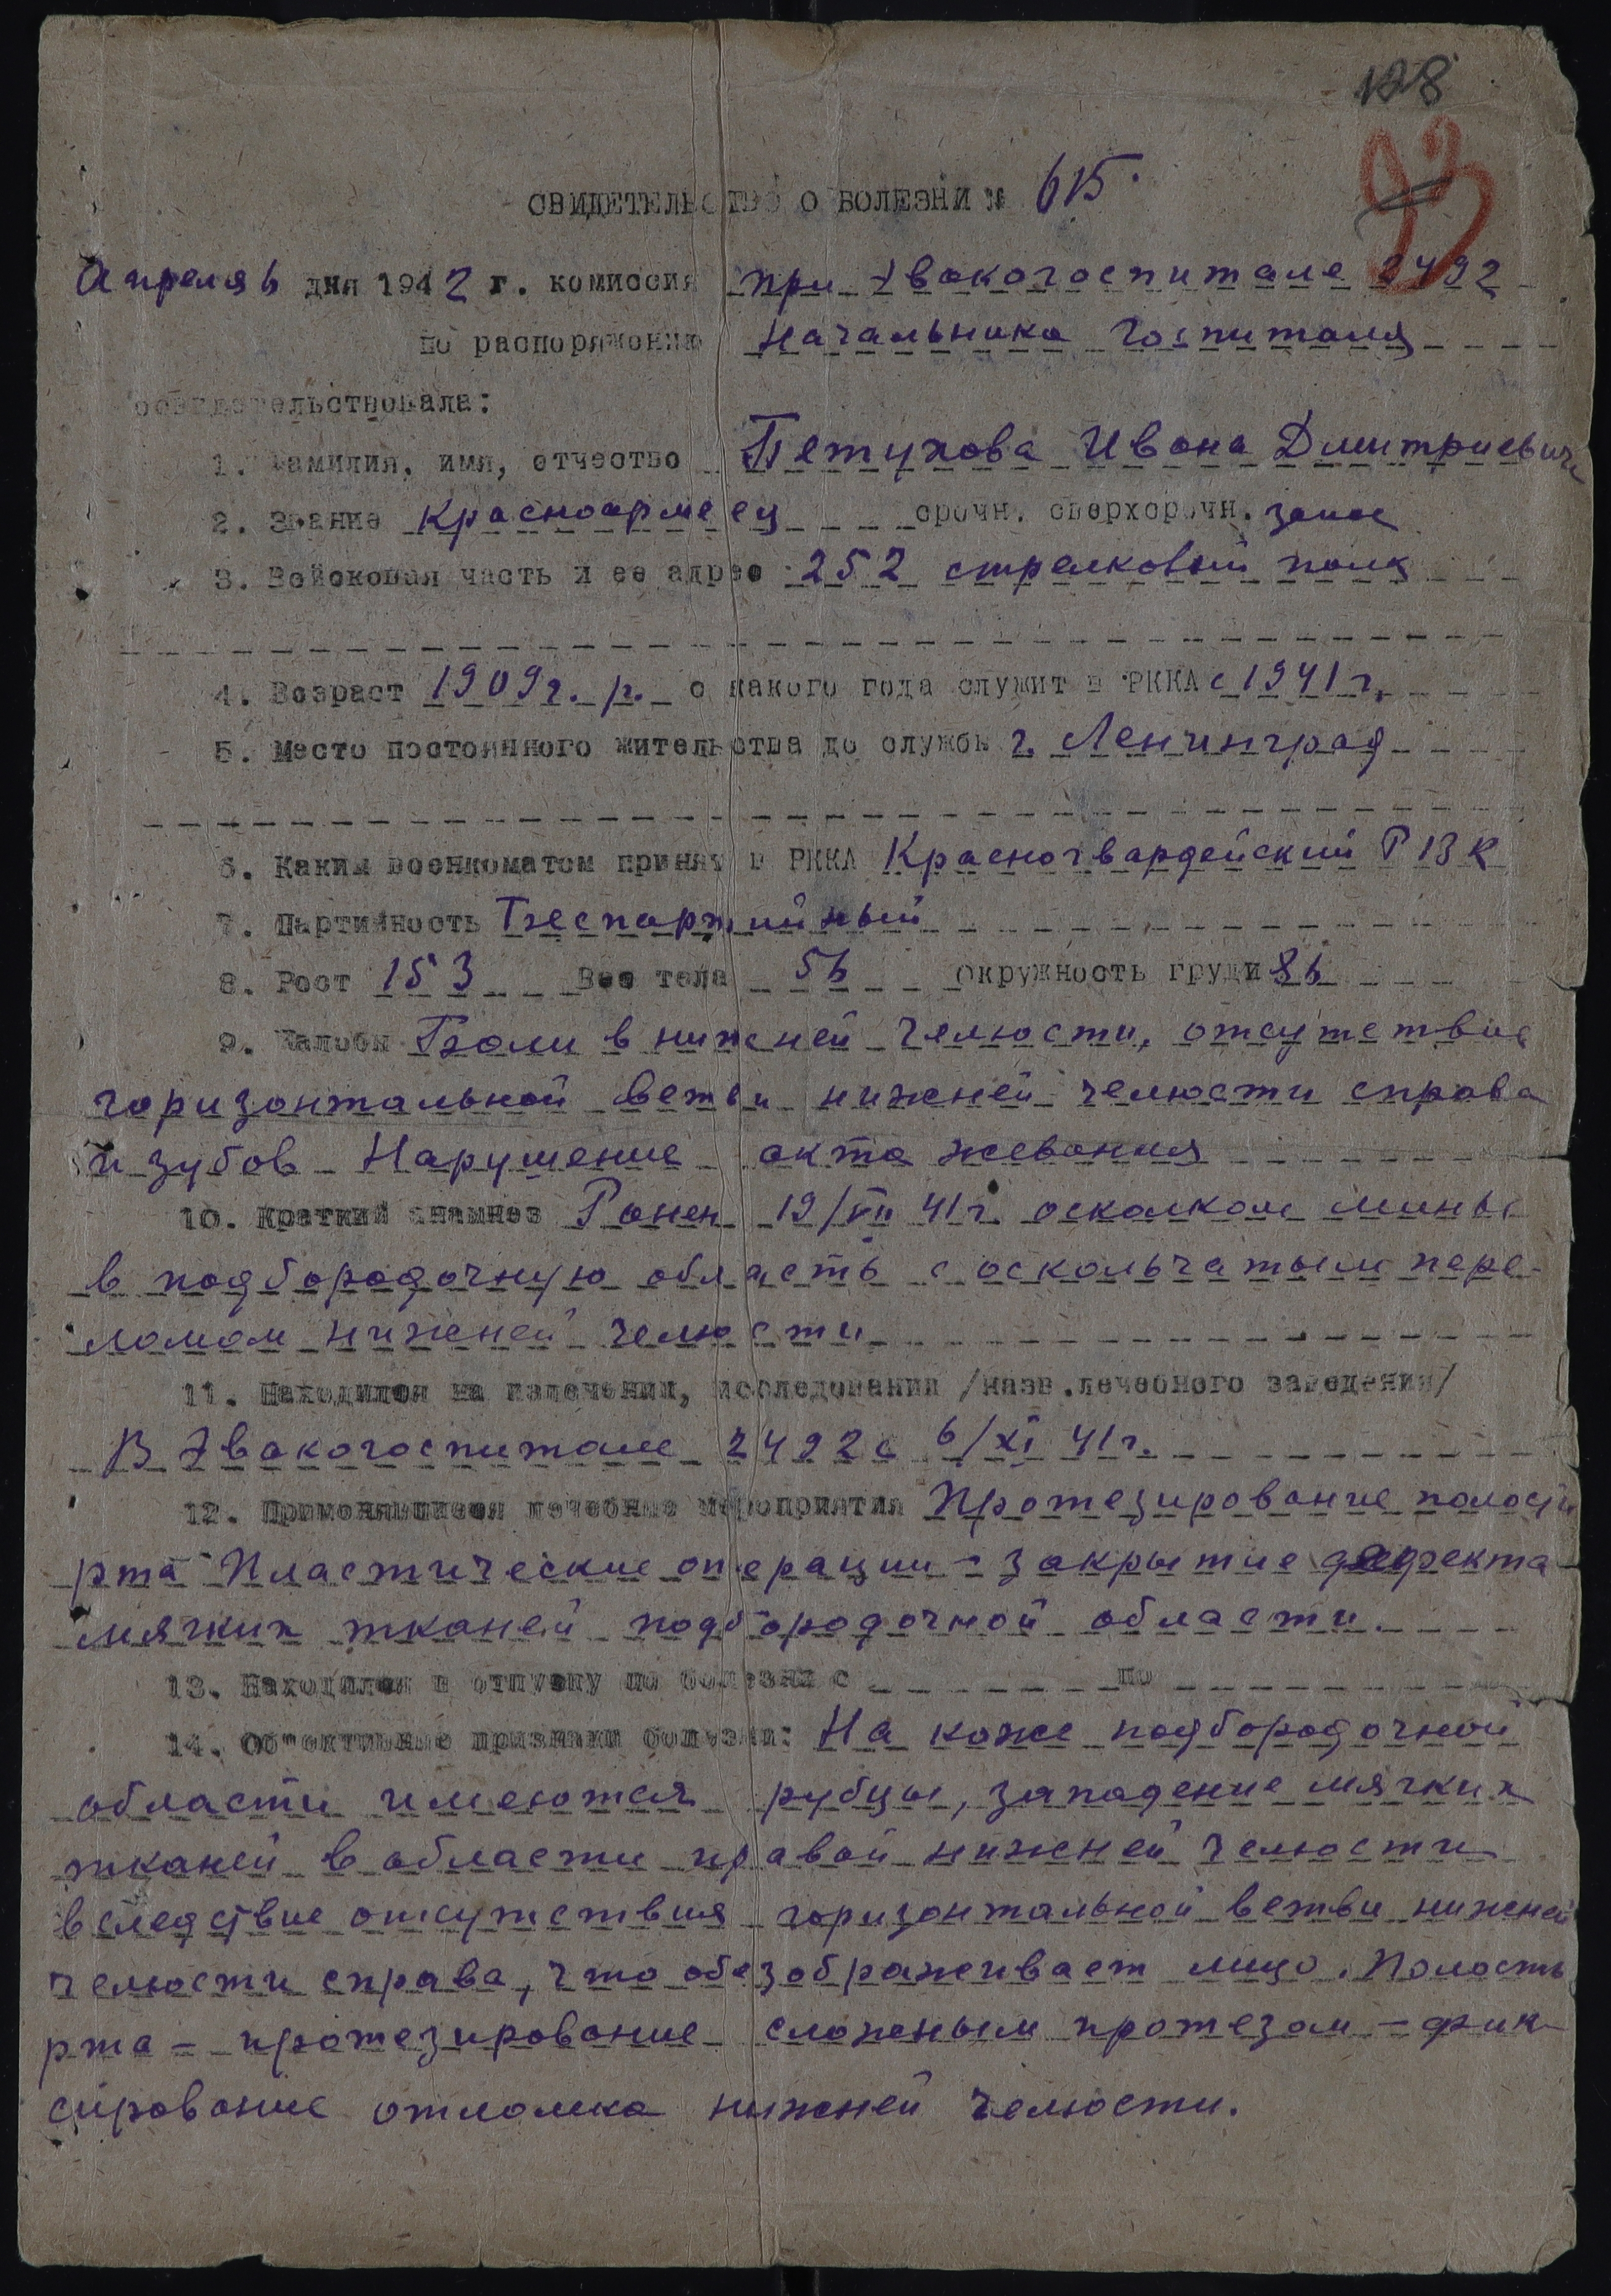 128
93
СВИДЕТЕЛЬСТВО О БОЛЕЗНИ № 615.
Апреля 6 дня 1942 г. комиссия при Эвакогоспитале 2492
по распоряжению Начальника Госпиталя
освидетельствовала:
1. Фамилия, имя, отчество Петухова Ивана Дмитриевича
2. Звание Красноармеец срочн. сверхсрочн. запас
3. Войсковая часть и ее адрес 252 стрелковый полк
4. Возраст 1909 г. р. с какого года служит в РККА с 1941 г.
5. Место постоянного жительства до службы г. Ленинград
6. Каким военкоматом принят в РККА Красногвардейский РВК
7. Партийность Беспартийный
8. Рост 153 Вес тела 56 окружность груди 86
9. Жалобы Боли в нижней челюсти, отсутствие
горизонтальной ветви нижней челюсти справа
и зубов Нарушение акта жевания
10. Краткий анамнез Ранен 19/VII 41 г. осколком мины
в подбородочную область с оскольчатым пере-
ломом нижней челюсти
11. Находился на излечении, исследовании /назв.лечебного заведения/
В Эвакогоспитале 2492 с 6/XI 41 г.
12. Применявшиеся лечебные мероприятия Протезирование полости
рта Пластические операции - закрытие дефекта
мягких тканей подбородочной области.
13. Находился в отпуску по болезни с по
14. Об'ективные признаки болезни: На коже подбородочной
области имеются рубцы, западение мягких
тканей в области правой нижней челюсти
вследствие отсутствия горизонтальной ветви нижней
челюсти справа, что обезображивает лицо. Полость
рта - протезирование сложным протезом - фик-
сирование отломка нижней челюсти.